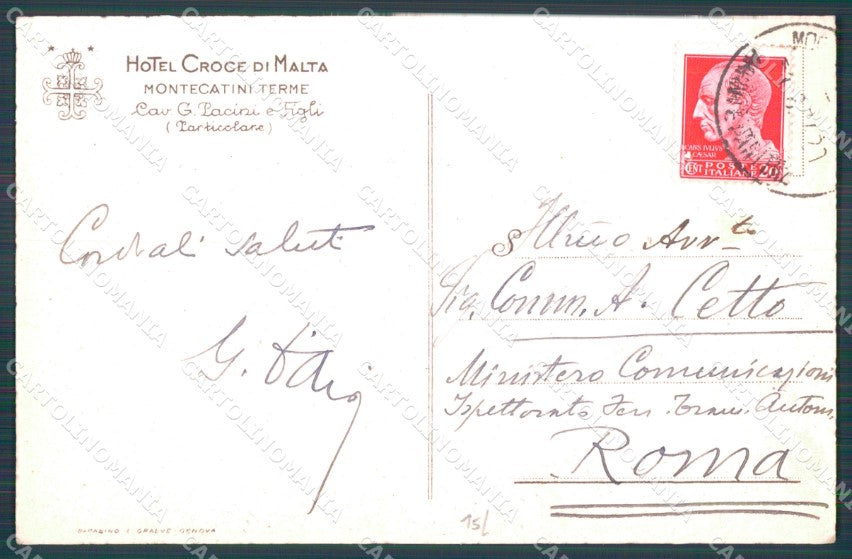 HOTEL CROCE DI MALTA
MONTECATINI TERME
Cav G. Pacini e Figli
(Particolare)
CAIVS IVLIVS
CAESAR
CENT POSTE 20
ITALIANE
Cordiali saluti
G.
Illmo Avv.to
Sig. Comm. A. Cetto
Ministero Comunicazioni
Ispettorato Ferr. Tramv. Autom.
Roma
GENOVA
15/
CARTOLINOMANIA